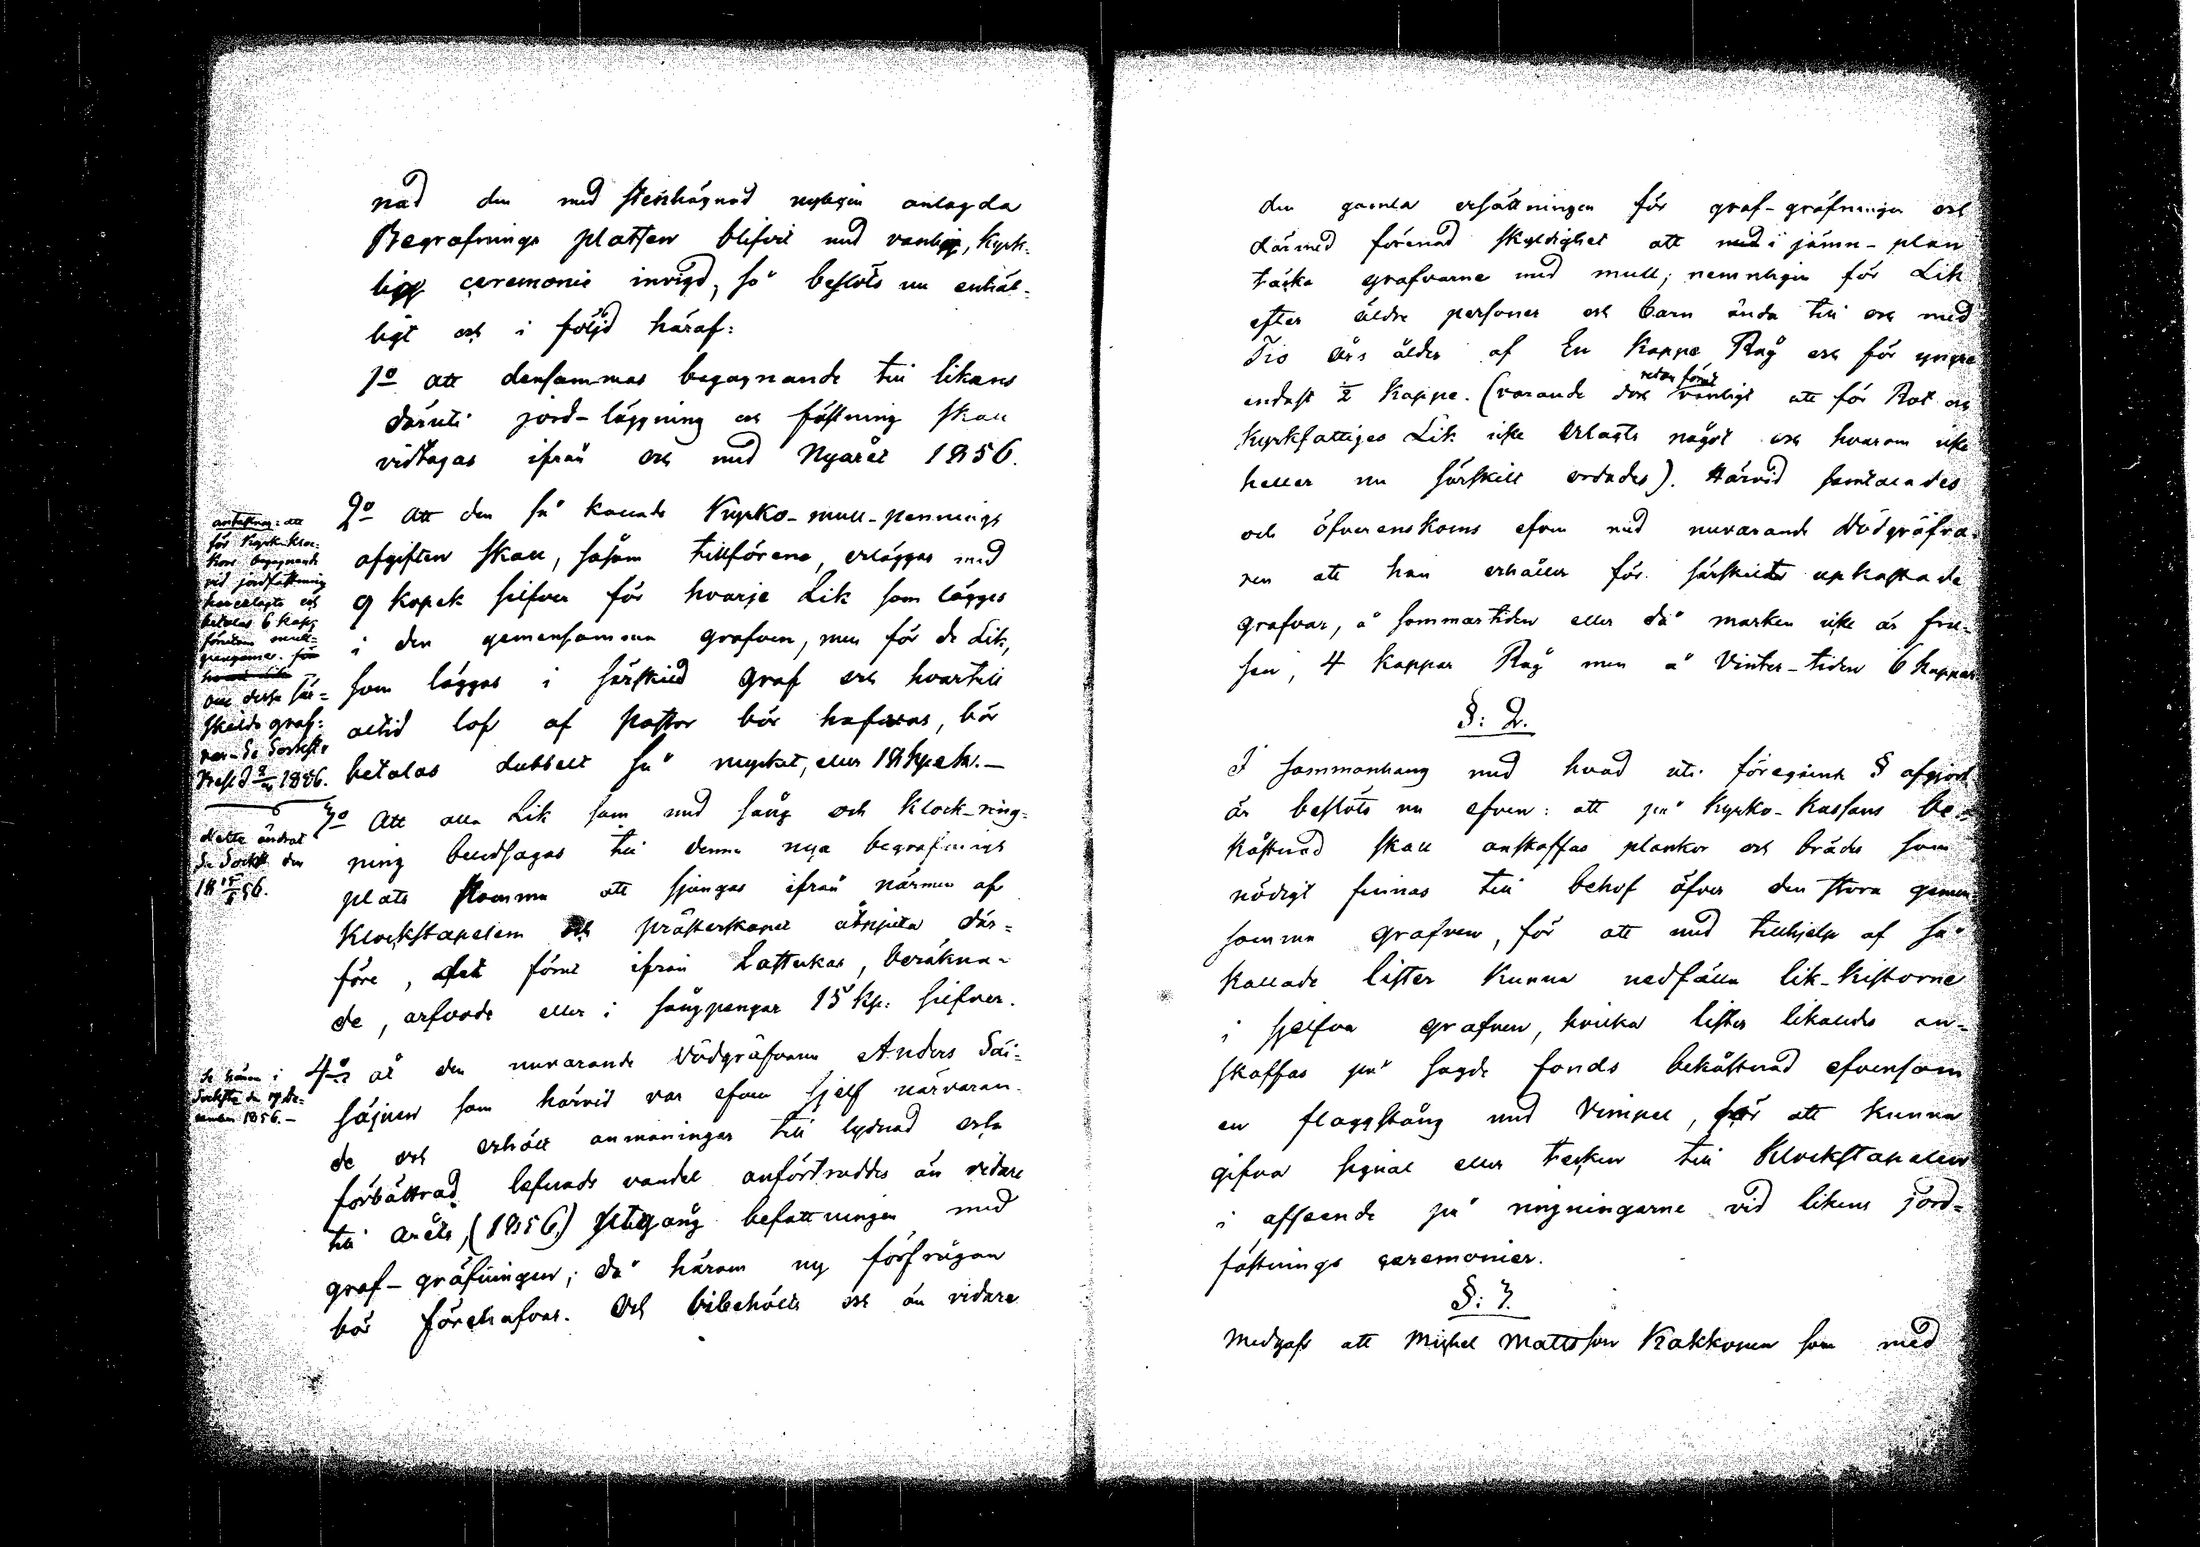 nad den med stenhägnad nyligen anlagda
Begrafnings platsen blifvit med vanlig, kyrk-
lig ceremonie invigd, så beslöts nu enhäl-
ligt och i följd häraf:
1o att densammas begagnande till likens
däruti jord-läggning och fästning skall
vidtagas ifrån och med Nyåret 1856.
2o Att den så kallade Kyrko-mull-pennings
afgiften skall, såsom tillförene, erläggas med
9 kopek silfver för hvarje Lik som lägges
i den gemensamma grafven, men för de Lik,
som läggas i särskild graf och hvartill
alltid lof af Pastor bör hafvas, bör
betalas dubbelt så mycket, eller 18 kpek.—
3o Att alla Lik som med sång och Klock-ring-
ning beledsagas till denna nya begrafnings
plats komma att sjungas ifrån närmen af
Klockstapelen och prästerskapet åtnjuta där-
före, förut ifrån Latterkas, beräkna-
de, arfvode eller i sångpengar 15 kp: silfver.
4o at den nuvarande Dödgräfvaren Anders Säi-
säjnen som härvid var efven sjelf närvaran-
de och erhöll anmaningar till lydnad och
förbättrad lefnads vandel anförtroddes än vidare
till årets, (1856) utgång befattningen med
graf-gräfningen; då härom ny förfrågan
bör förehafvas. Och bibehölls och än vidare
för Kyrk-kloc-
kors begagnande
vid jordfästning
betalas 6 kap
om dessa sär-
skilda graf-
var. Se Sockst
Detta ändrat
Se Sockst den
18 15/5 56.
Se härom i
Sockst. den 19 De-
cember 1856.—
den gamla ersättningen för graf-gräfningen och
därmed förenad skyldighet att med i jämn-plan
täcka grafvarne med mull; nemnligen för Lik
efter äldre personer och barn ända till och med
Tio års ålder af En Kappe Råg och för yngre
endast ½ Kappe. (varande dock redan förut vanligt att för Rot och
Kyrkfattiges Lik icke erlagts något och hvarom icke
heller nu särskilt ordades). Härvid samtalades
och öfverenskoms efven med nuvarande Dödgräfva-
ren att han erhåller för särskildt upkastade
grafvar, å sommartiden eller då marken icke är fru-
sen, 4 kappar Råg men å Vinter-tiden 6 kappar
§: 2.
I sammanhang med hvad uti föregående § afgjort
är beslöts nu efven: att på Kyrko-Kassans be-
kåstnad skall anskaffas plankor och bräder som
nödigt finnas till behof öfver den stora gemen-
samma grafven, för att med tillhjelp af så
kallade lister kunna nedfälla lik-kistorne
i sjelfva grafven, hvilka lister likaledes an-
skaffas på sagde fonds bekåstnad efvensom
en flaggstång med Vimpel, för att kunna
gifva signal eller tecken till Klockstapelen
i afseende på ringningarne vid likens jord-
fästnings ceremonier.
§: 3.
Medgafs att Michel Mattsson Kakkonen som med